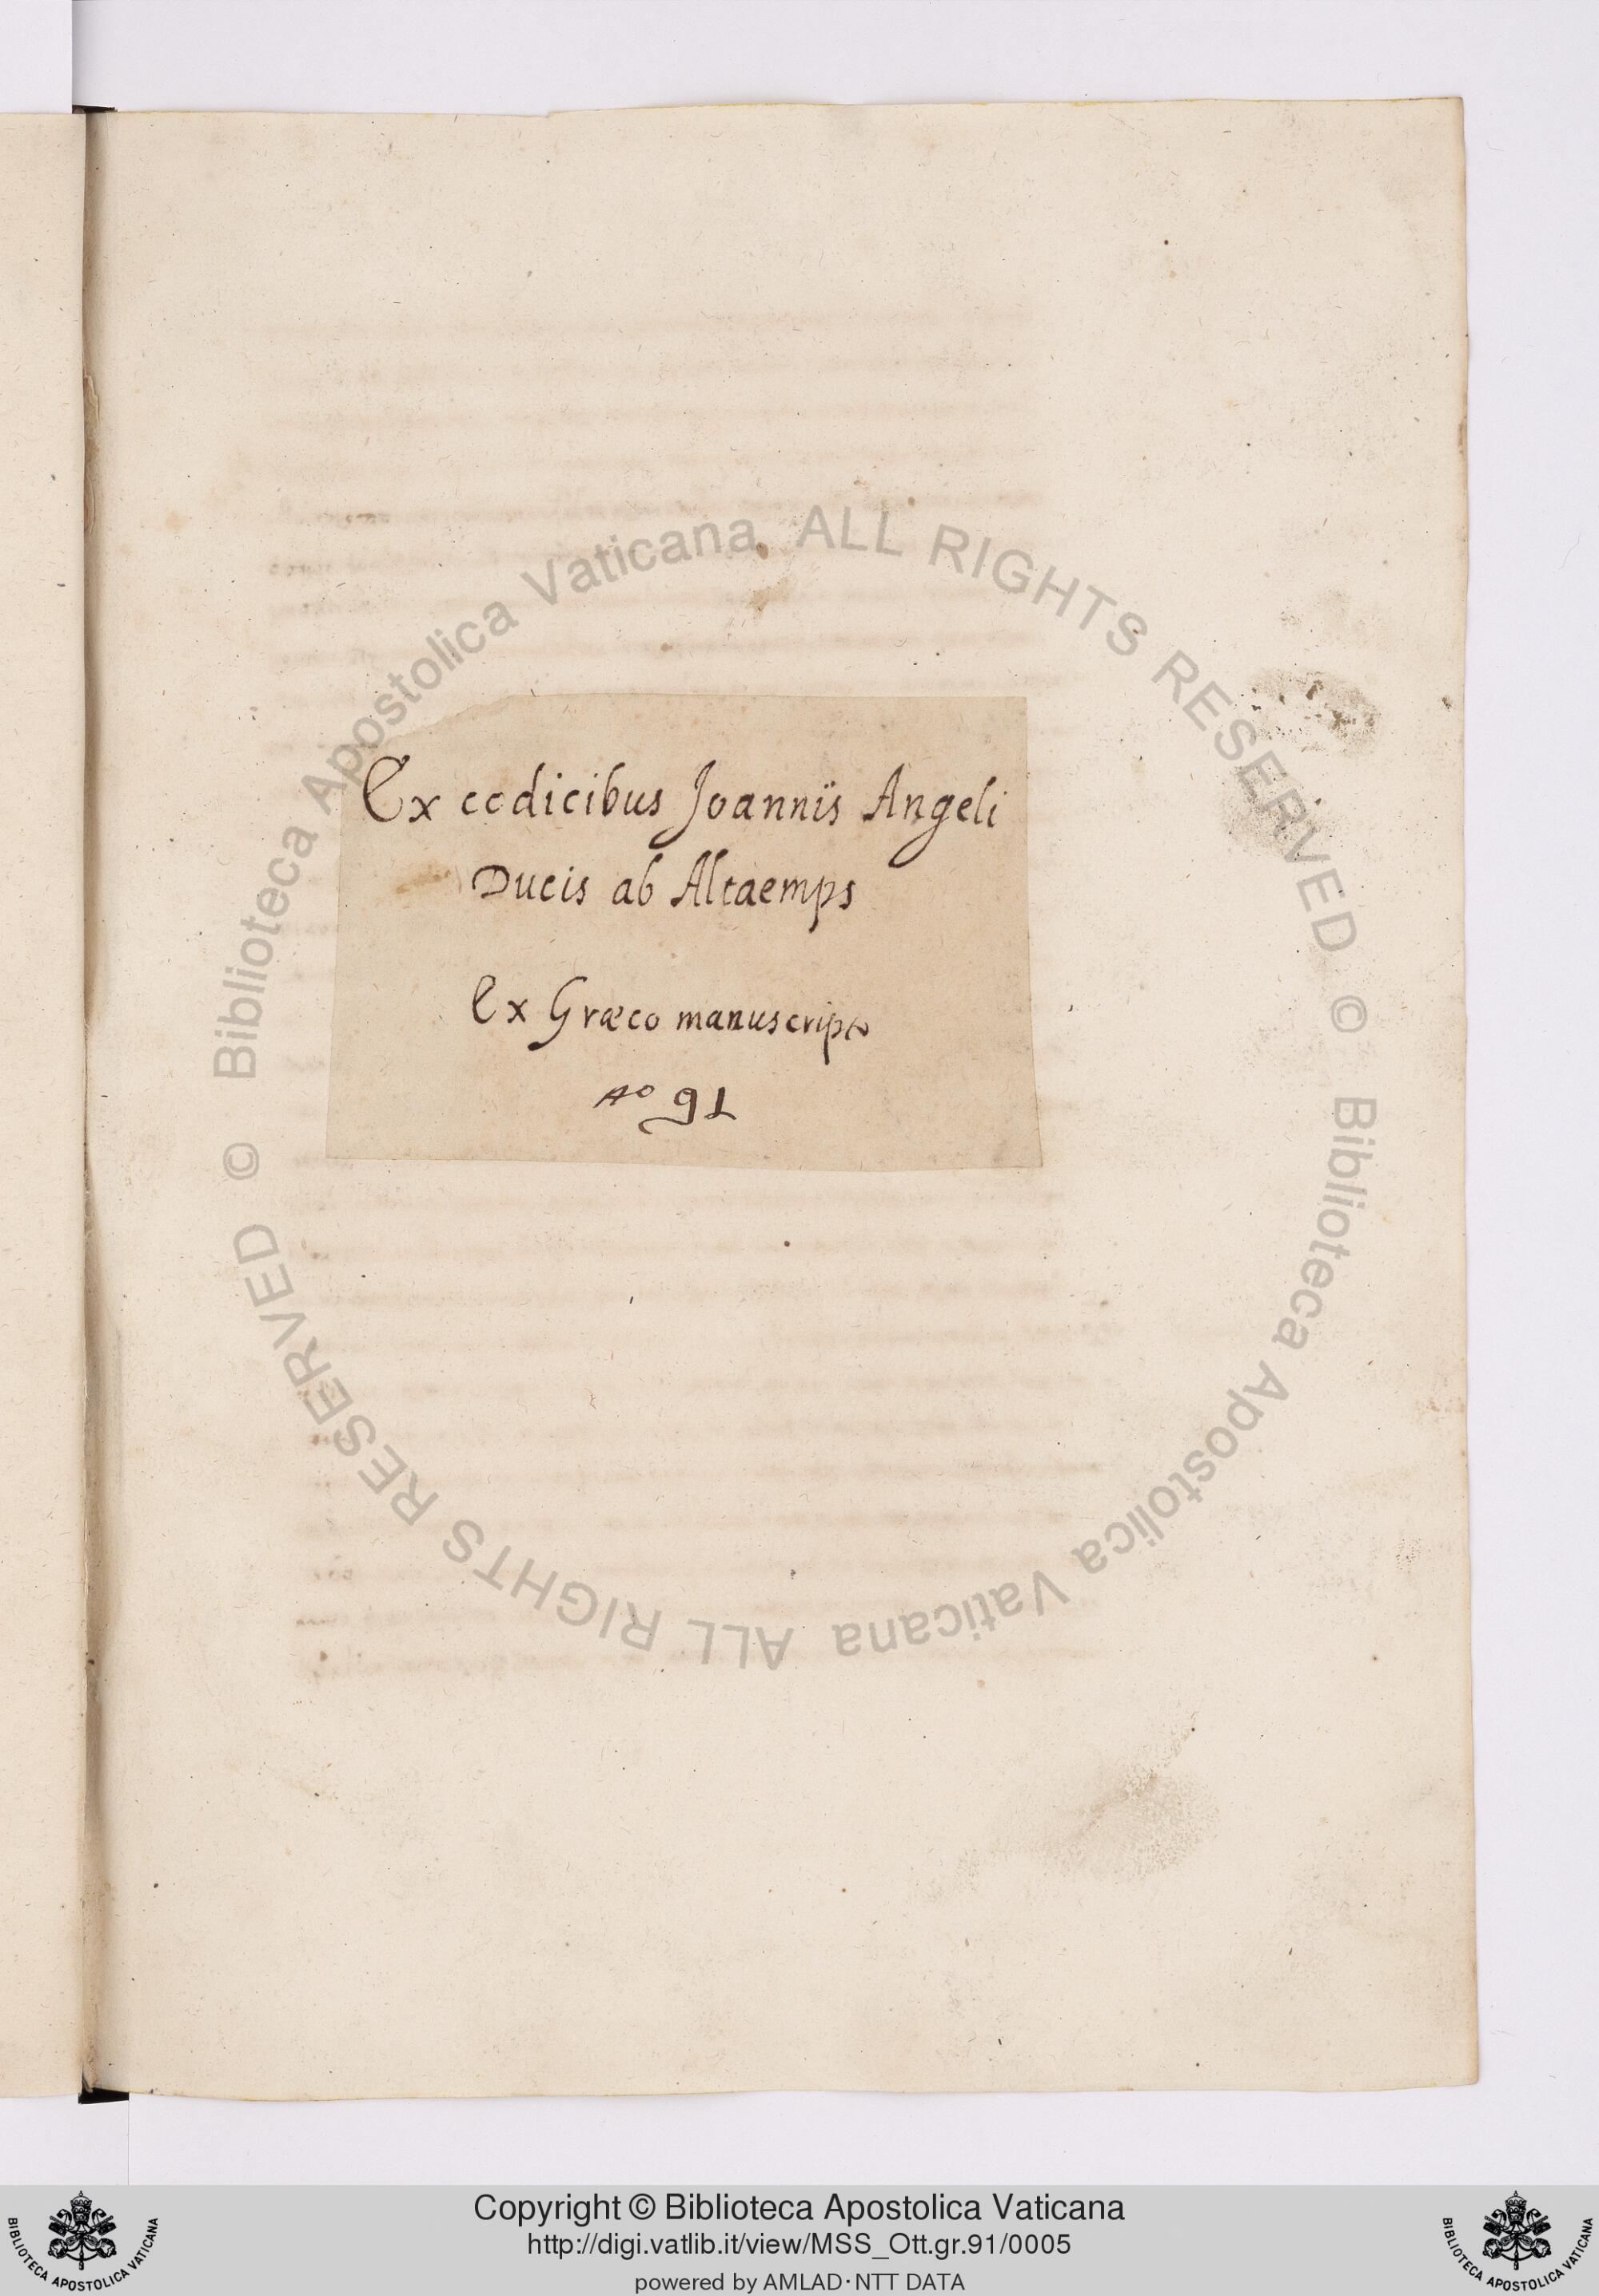 Ex codicibus Joannis Angeli
Ducis ab Altaemps
Ex Græco manuscripto
no 91
© Biblioteca Apostolica Vaticana ALL RIGHTS RESERVED
© Biblioteca Apostolica Vaticana ALL RIGHTS RESERVED
Copyright © Biblioteca Apostolica Vaticana
http://digi.vatlib.it/view/MSS_Ott.gr.91/0005
powered by AMLAD·NTT DATA
BIBLIOTECA APOSTOLICA VATICANA
BIBLIOTECA APOSTOLICA VATICANA